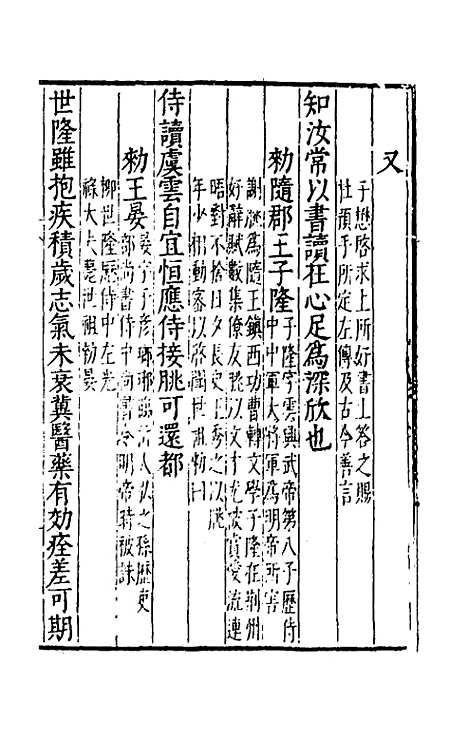 又
子懋啓求上所好書上答之賜
杜預手所定左傳及古今善言
知汝常以書讀在心足為深欣也
勑隨郡王子隆
子隆字雲興武帝第八子歷侍
中中軍大將軍為明帝所害
謝朓為隨王鎮西功曹轉文學子隆在荆州
好辭賦數集僚友朓以文才尤被賞愛流連
晤對不捨日夕長史王秀之以朓
年少相動密以啓聞世祖勑曰
侍讀虞雲自宜恒應侍接朓可還都
勑王晏
晏字士彥瑯琊臨沂人弘之孫歷吏
部尚書侍中尚書令明帝時被誅
柳世隆歷侍中左光
祿大夫薨世祖勑晏
世隆雖抱疾積歲志氣未衰冀醫藥有効痊差可期